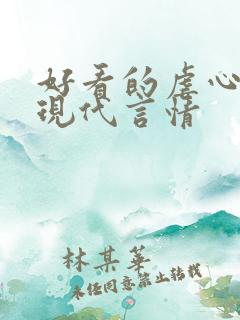 好看的虐心
現代言情
林某華
未經同意禁止轉載